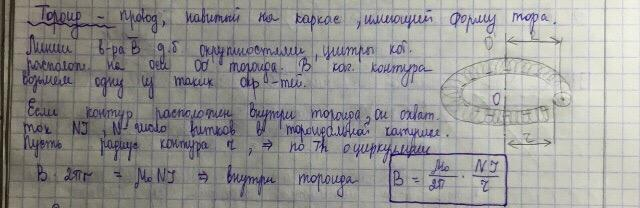 Тороид - провод, навитый на каркас, имеющий форму тора.
Линии в-ра B̅ д.б. окружностями, центры кот.
располож. на оси OO' тороида. В кач. контура
возьмем одну из таких окр-тей.
Если контур расположен внутри тороида, он охват.
ток NI, N - число витков в тороидальной катушке.
Пусть радиус контура r, ⇒ по Th о циркуляции
B · 2πr = μ₀NI ⇒ внутри тороида
B = μ₀/2π · NI/r
O'
r
O
r